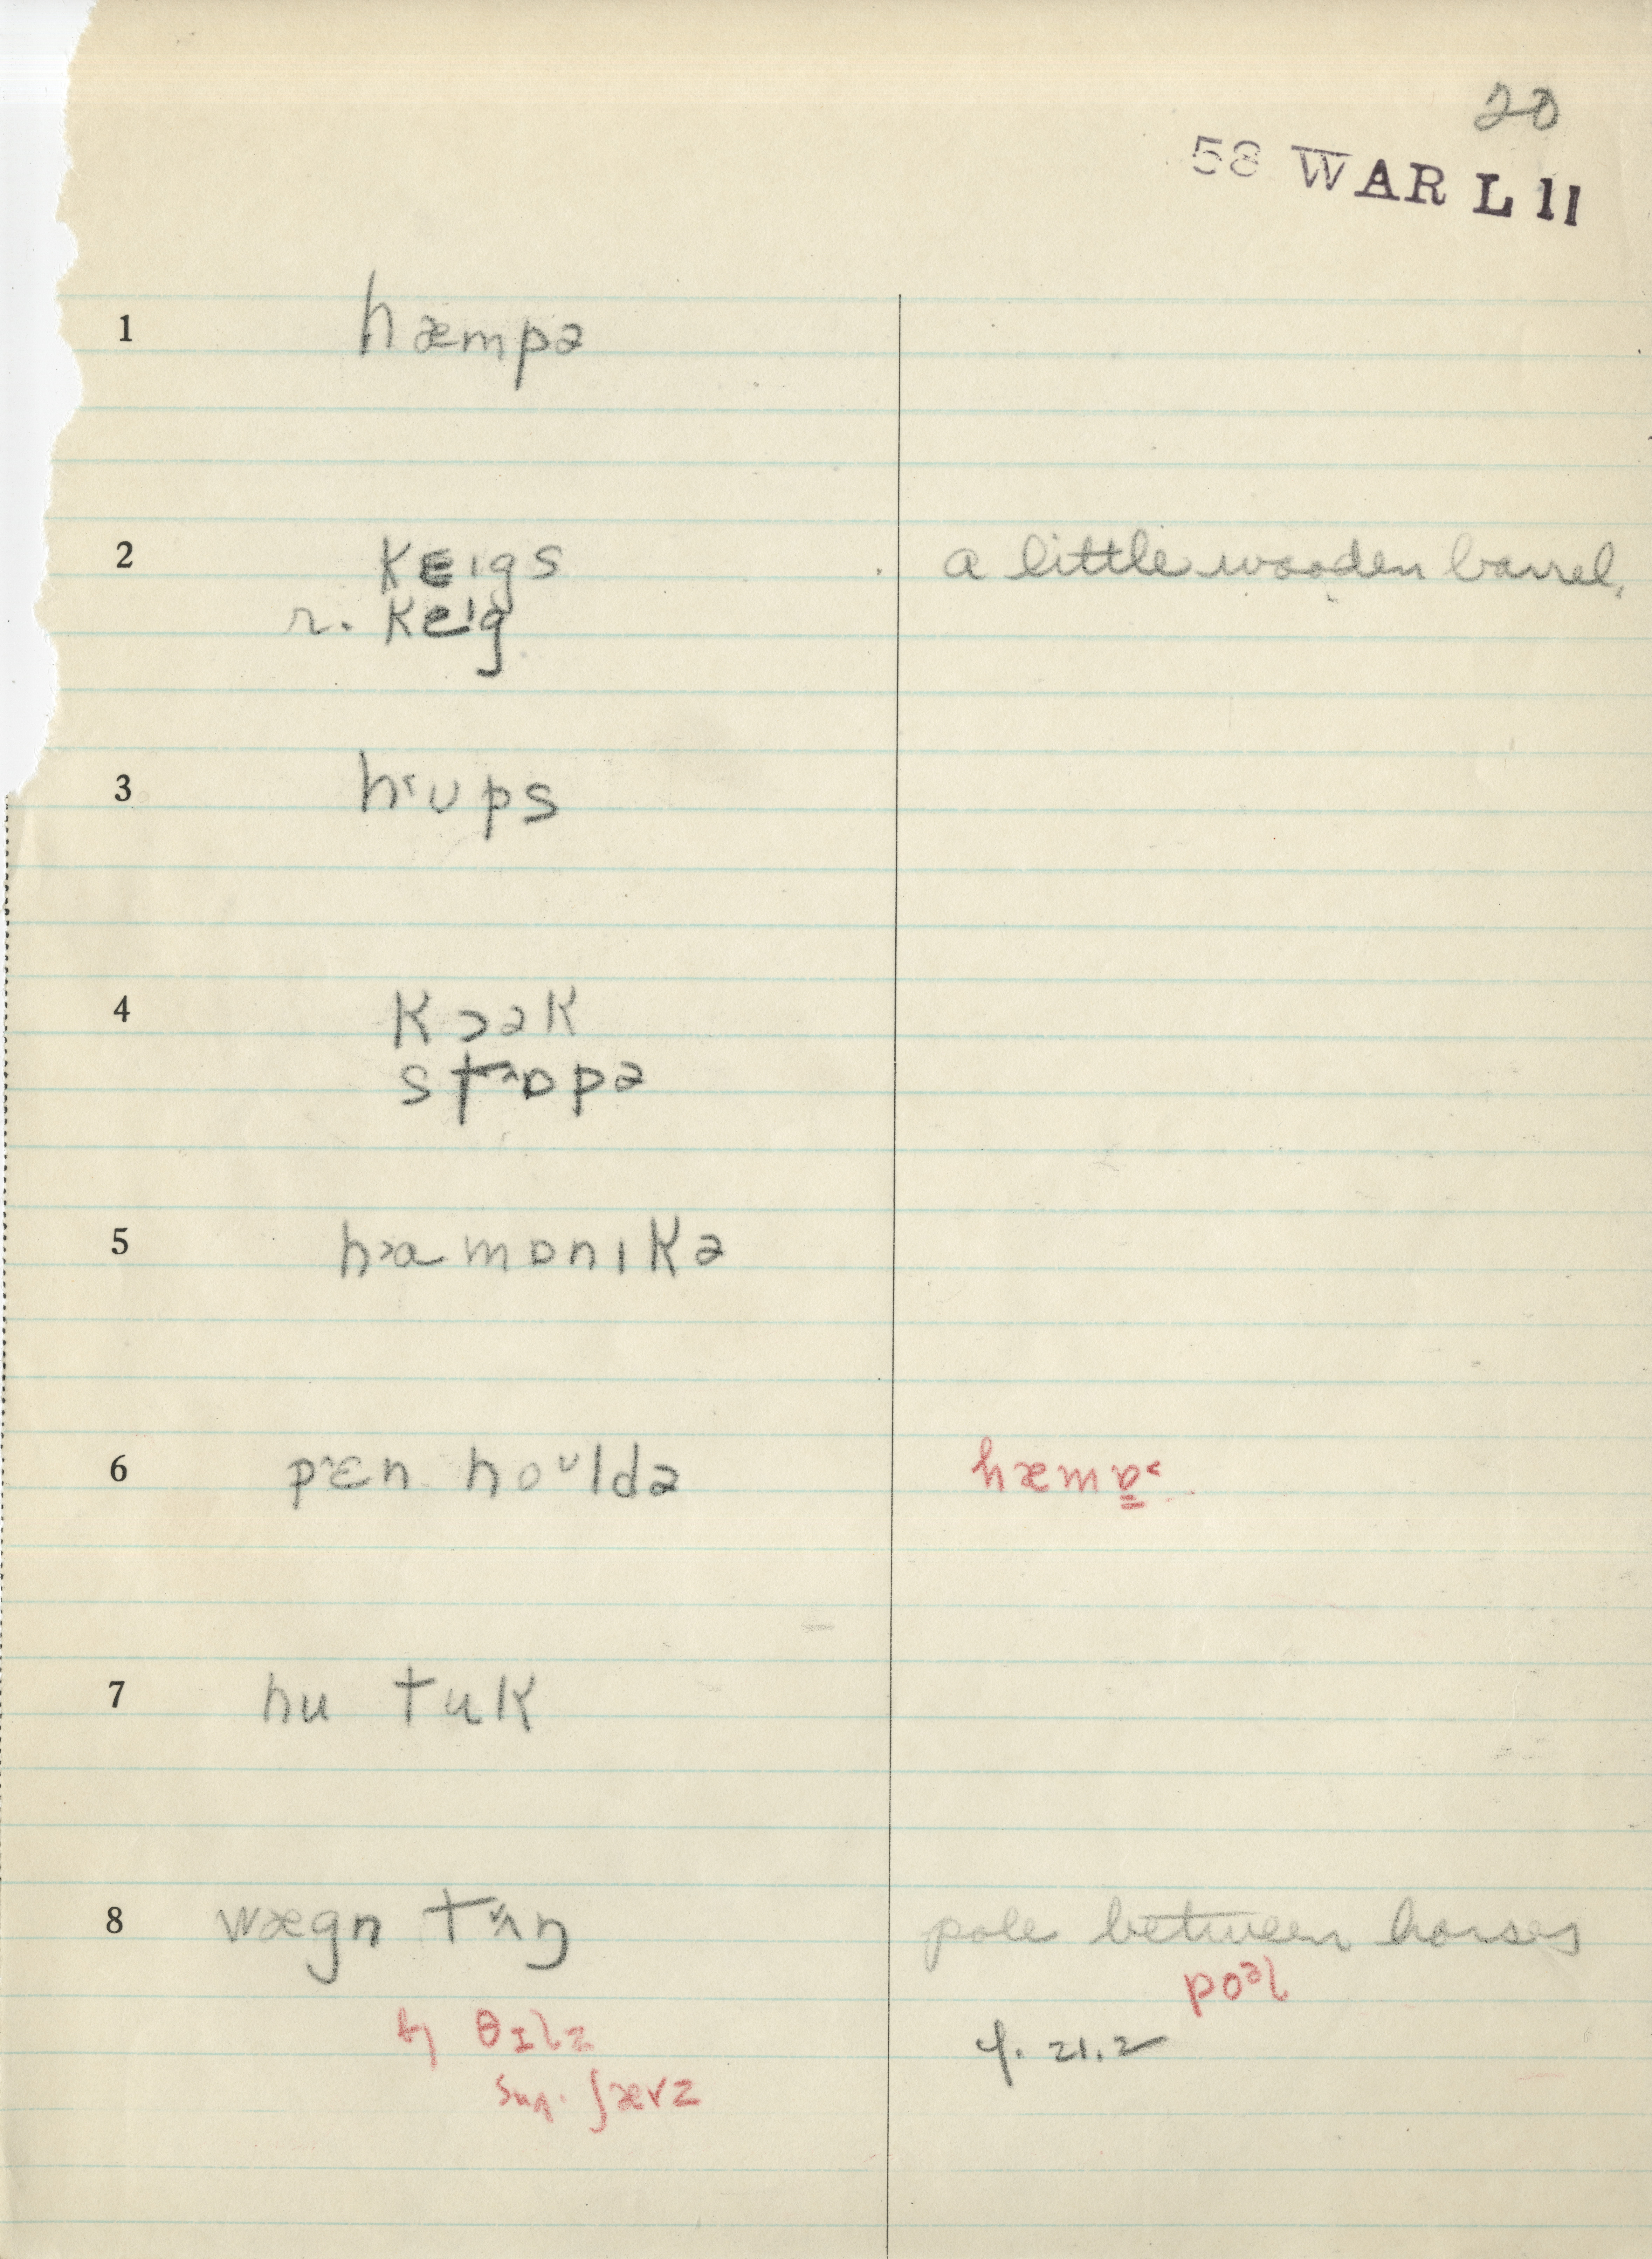 20
58 WAR L 11
1 hæmpə
2 kɛɪgs a little wooden barrel,
r. keɪg
3 h˂ʊps
4 kɔək
st˄ɒpə
5 h˃amɒnɪkə
6 p˄ɛn hoᶷldə hæmɐ̳˂
7 hu tuk
8 wægn tʌ̌ŋ pole between horses
poᵊl
ɪlz cf. 21.2
sug. ʃævz